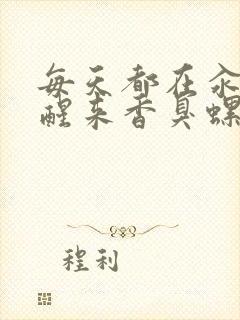 每天都在汆
醒来香臭螺
程利